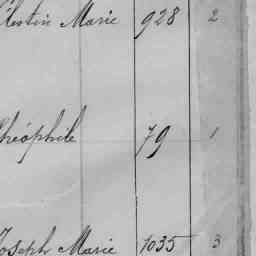 élestin Marie 928 2
Théophile 79 1
Joseph Marie 1035 3